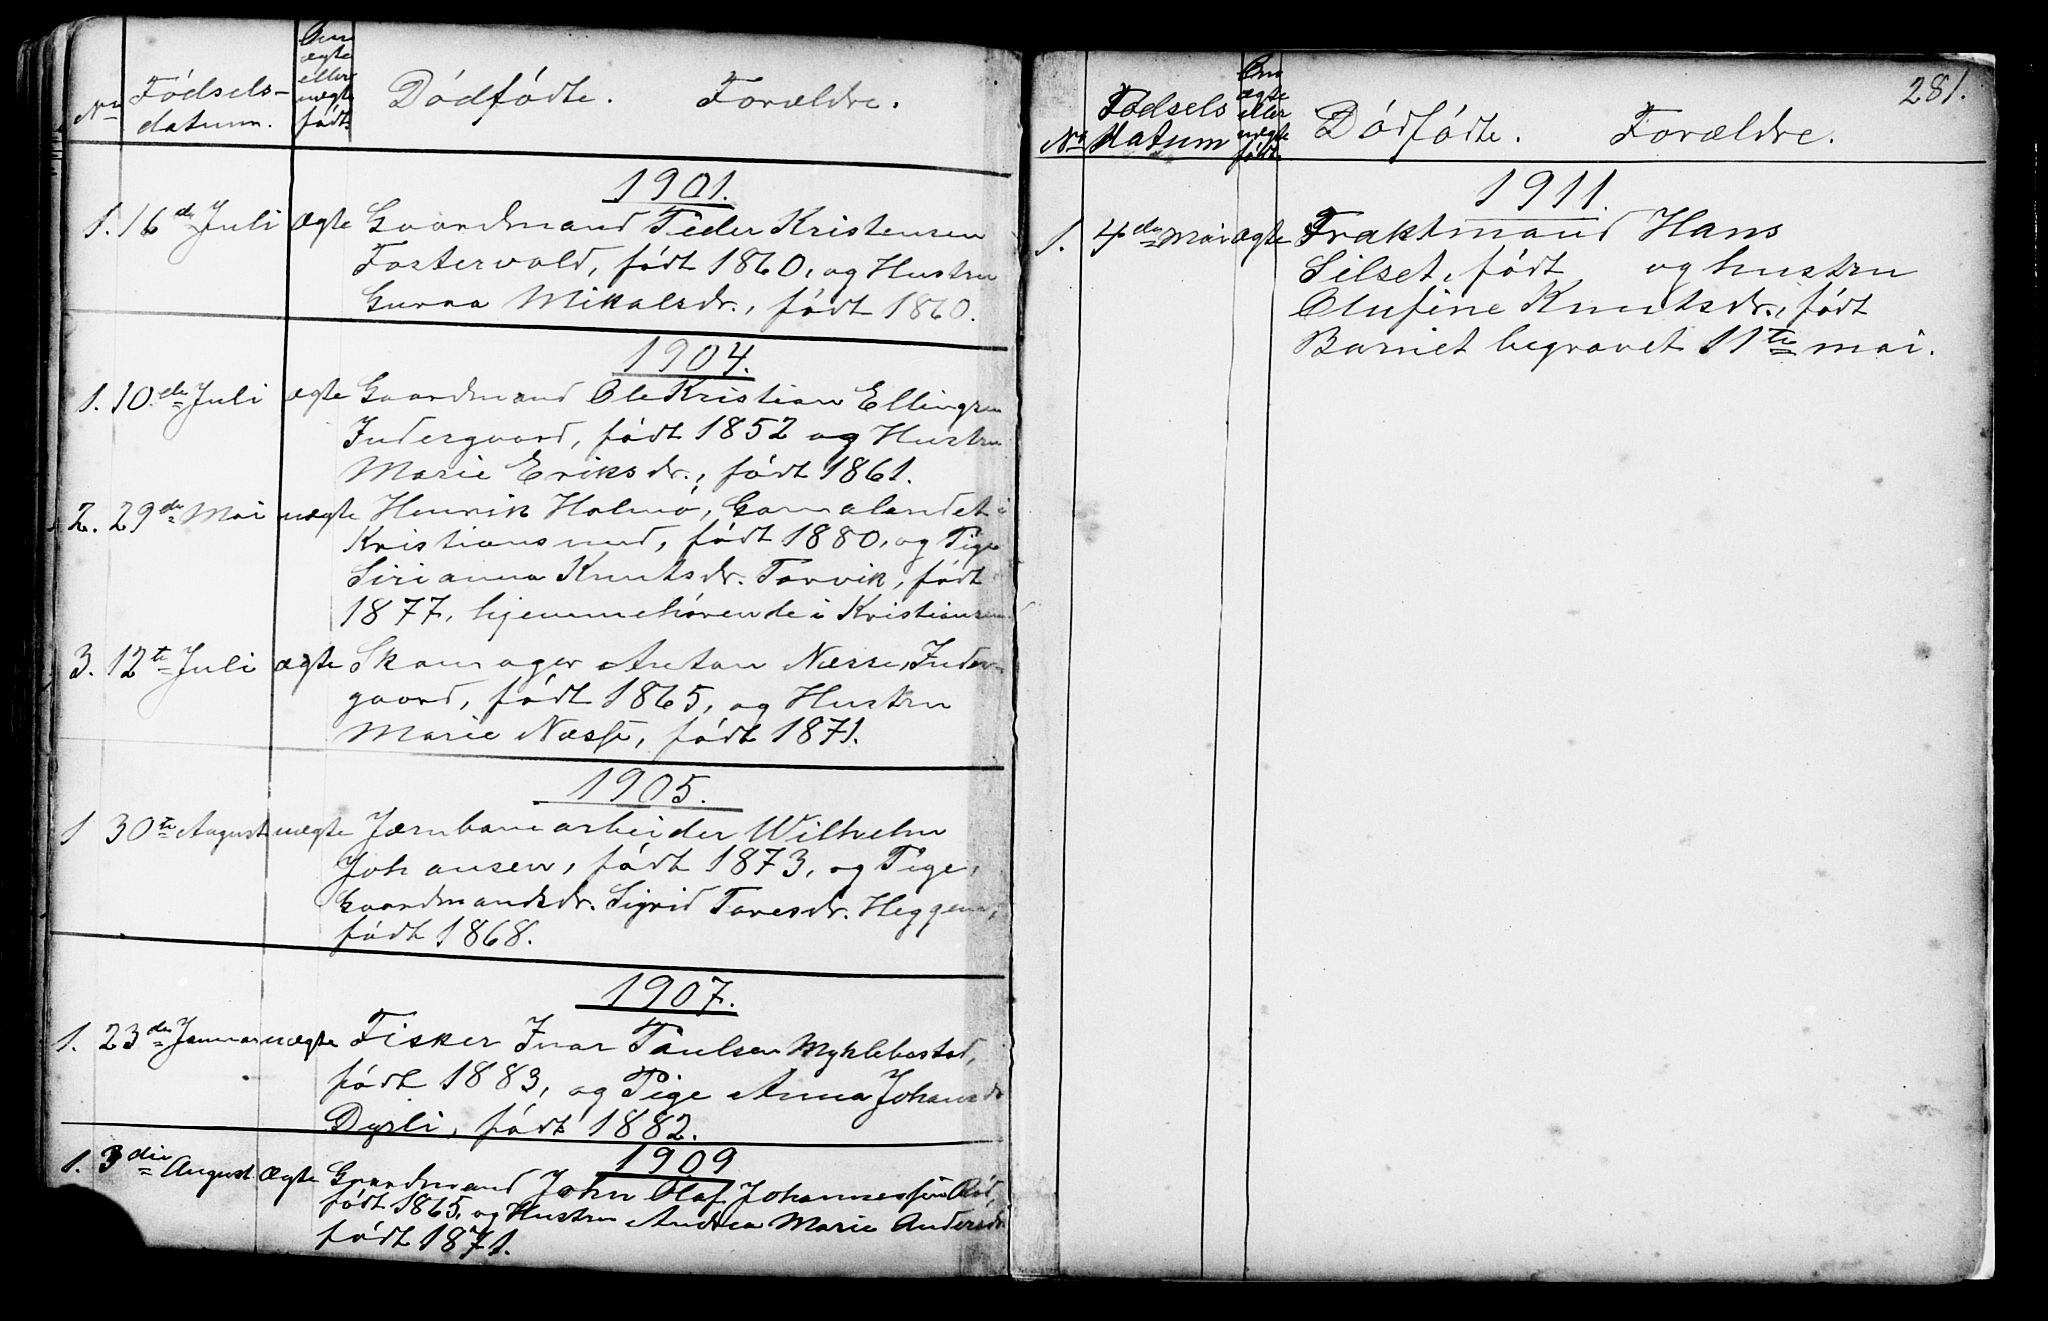 No Födsels-datum. Om ægte eller uægte födt. Dödfödte. Forældre.
1901.
1. 16de Juli ægte Gaardmand Peder Kristensen
Fostervold, födt 1860, og Hustru
Guraa Mikalsdr., födt 1860.
1904.
1. 10de Juli ægte Gaardmand Ole Kristian Ellingsen
Indergaard, födt 1852 og Hustru
Marie Eriksdr., födt 1861.
2. 29de Mai uægte Henrik Holmö, Gomalandet i
Kristiansund, födt 1880, og Pige
Sirianna Knutsdr. Torvik, födt
1877, hjemmehörende i Kristiansund
3. 12te Juli ægte Skomager Anton Næsse, Inder-
gaard, födt 1865, og Hustru
Marie Næsse, födt 1871.
1905.
1 30te August uægte Jærnbanearbeider Wilhelm
Johansen, födt 1873, og Pige,
Gaardmandsdr. Sigrid Toresdr. Heggem,
födt 1868.
1907.
1. 23de Januar uægte Fisker Ivar Paulsen Myklebostad,
födt 1883, og Pige Anna Johansdr
Dyrli, födt 1882.
1909
1. 3die August ægte Gaardmand John Olaf Johannessen Röd,
födt 1865, og Hustru Andrea Marie Andersdr
födt 1871.
281.
No Födsels Datum Om ægte eller uægte födt. Dödfödte. Forældre.
1911.
1. 4de Mai ægte Fraktmand Hans
Silset, födt og hustru
Olufine Knutsdr., födt
Barnet begravet 11te mai.